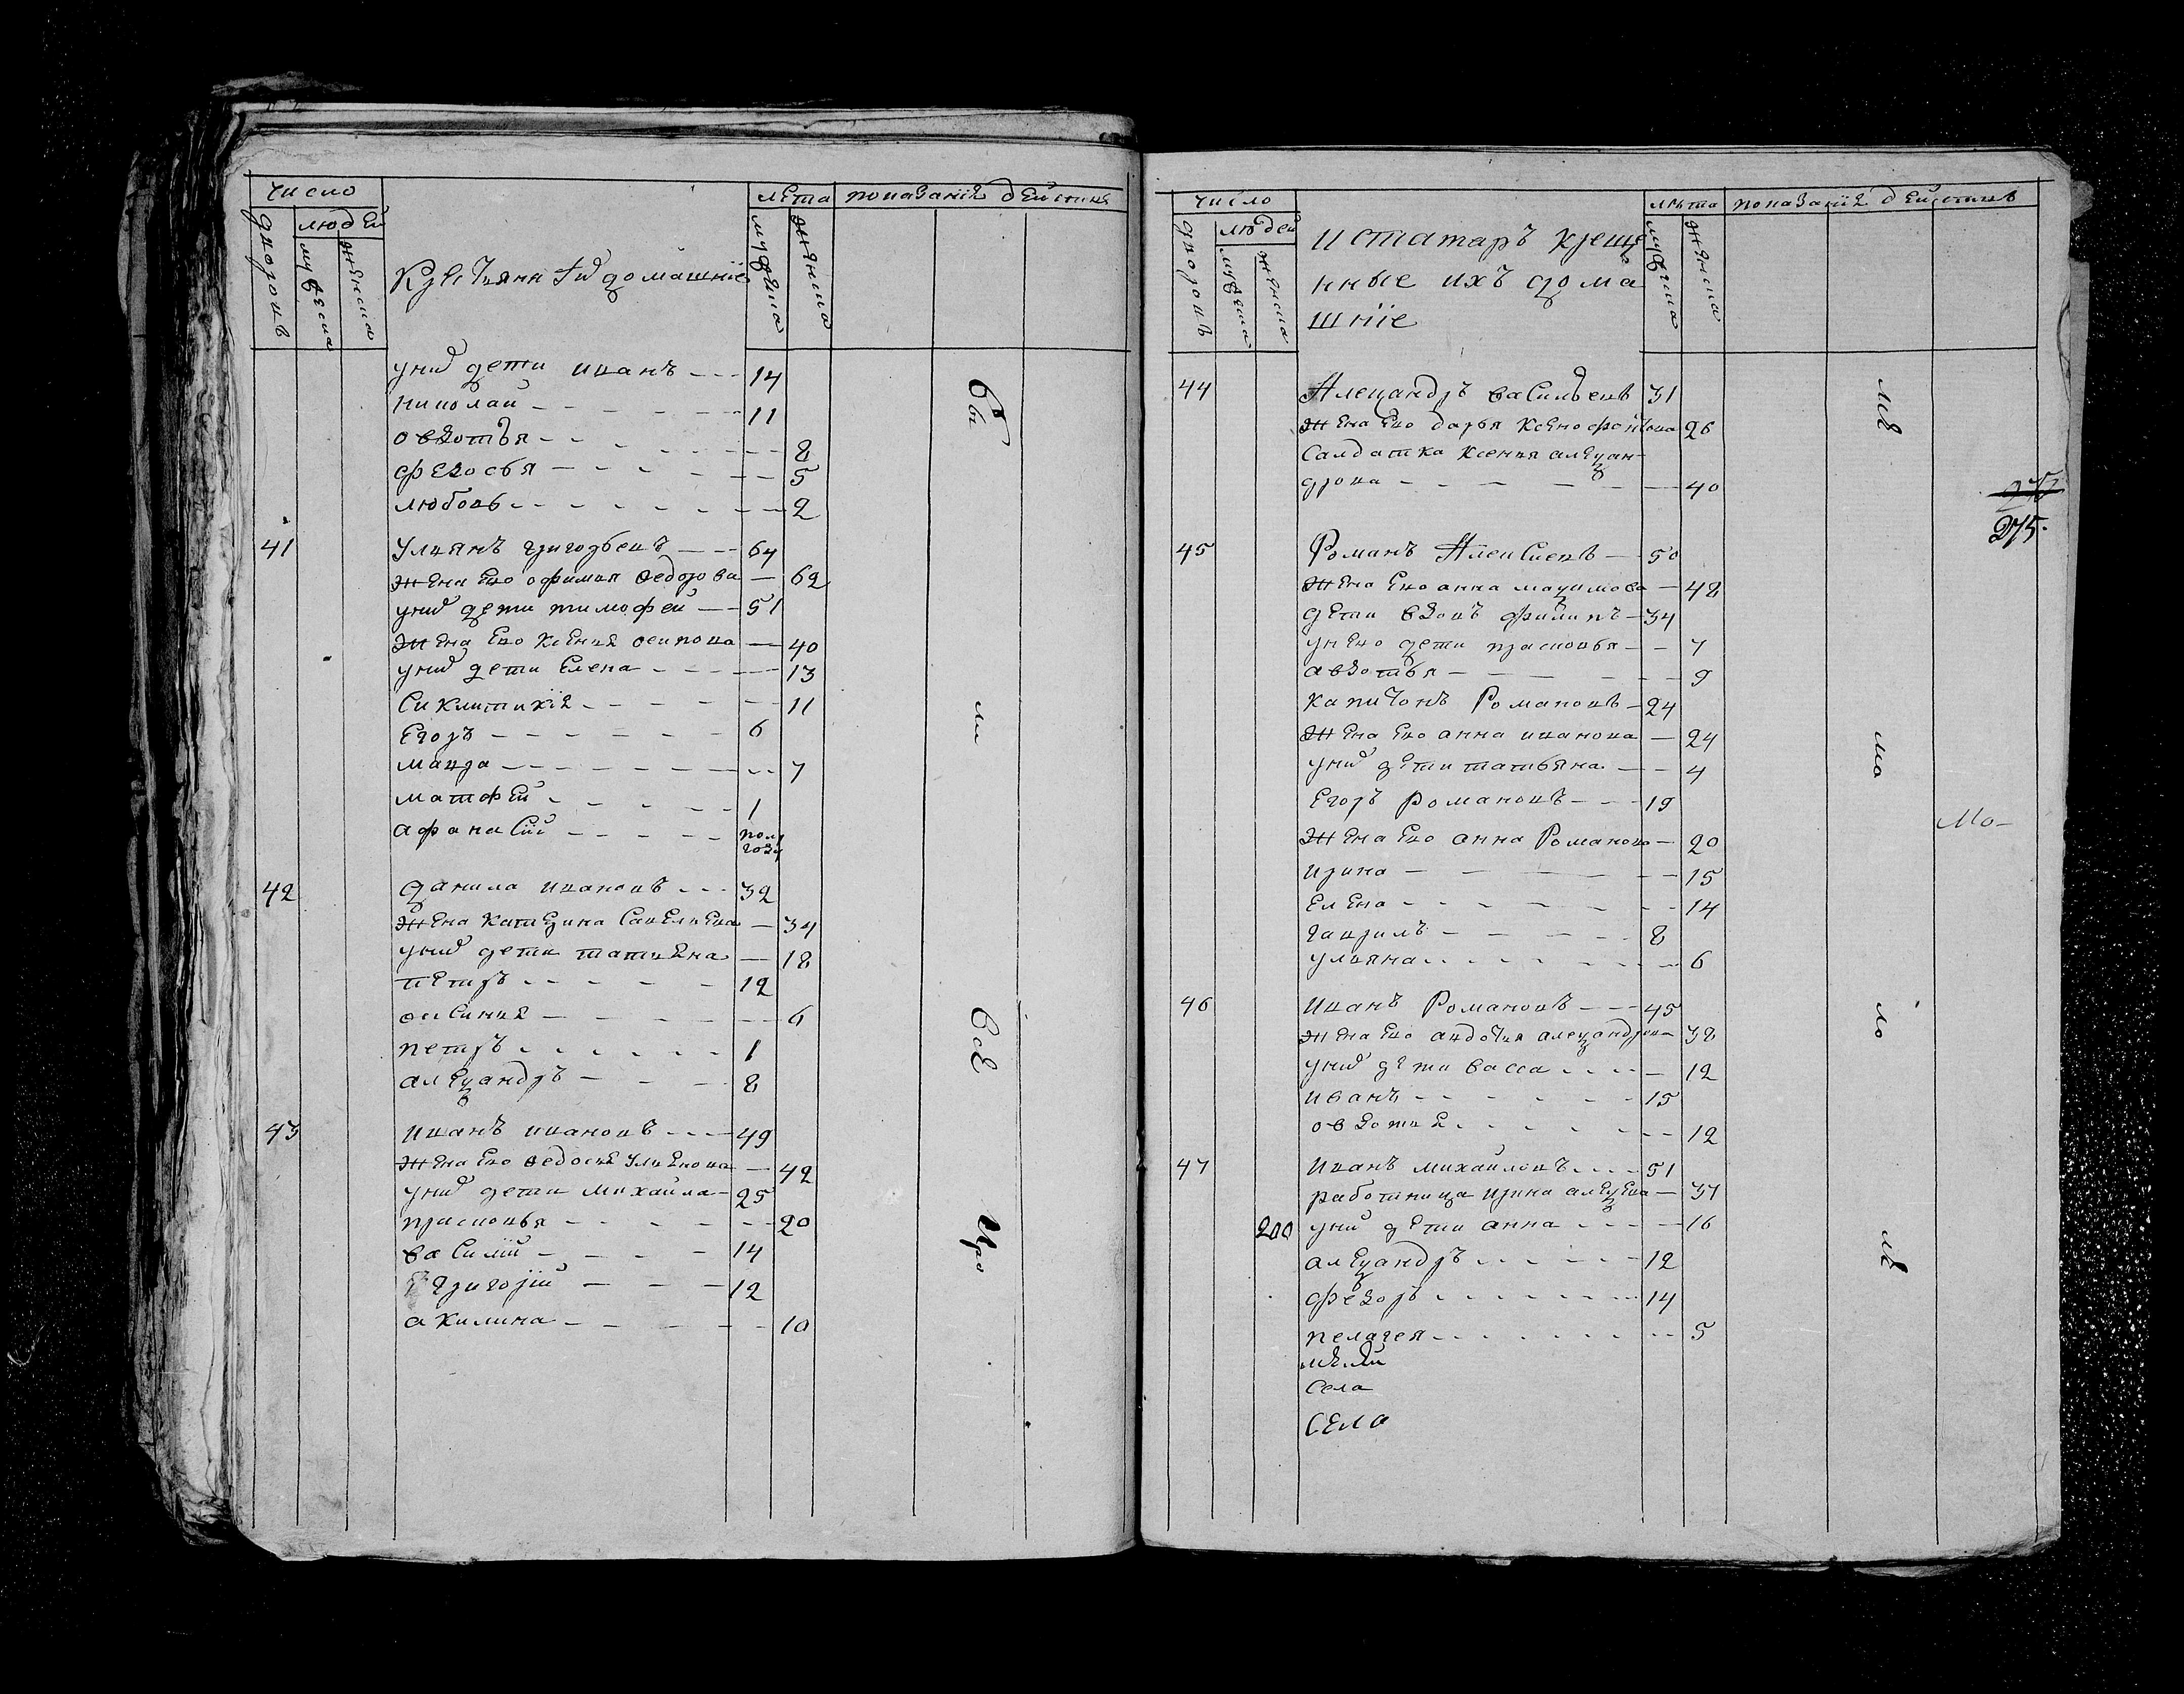 число
лѣта показаніе действия
людей
дворовъ
мужеска
женска
мужеска
женска
Крестьяни ихъ домашніе
у них дети иванъ 14
николай 11
овдотья 8
федосья 5
любовь 2
41 Улиянъ григорьевъ 64
жена ево офимия Ѳедорова 62
у них дети тимофей 51
жена ево ксения осипова 40
у них дети Елена 13
Сиклитикія 11
Егоръ 6
мавра 7
матфей 1
афанасій полу
году
42 данила ивановъ 32
жена катерина Савелиева 34
у них дети татиена 18
петръ 12
аксиния 6
петръ 1
александръ 8
43 иванъ ивановъ 49
жена ево Ѳедосия улиенова 42
у них дети михайла 25
прасковья 20
василій 14
григорій 12
акилина 10
бы
ли
все
ис про
число
лѣта показаніе действия
людей
дворовъ
мужеска
женска
мужеска
женска
ис татаръ креще
нные ихъ дома
шніе
44 Александръ васильевъ 31
жена ево дарья ксенофонтова 26
Салдатка ксения алексан-
дрова 40
275.
45 Романъ Алексиевъ 50
жена ево анна максимова 48
дети вдовъ филипъ 34
у нево дети прасковья 7
авдотья 9
капитонъ Романовъ 24
жена ево анна иванова 24
у них дети татьяна 4
Егоръ Романовъ 19
жена ево анна Романова 20
ирина 15
Елена 14
гаврилъ 8
улияна 6
46 Иванъ Романовъ 45
жена ево авдотия александрова 38
у них дети васса 12
иванъ 15
овдотия 12
47 Иванъ михайловъ 51
работница ирина алексева 37
200 у них дети анна 16
александръ 12
федоръ 14
пелагея 5
села
села
ме
мо
Мо-
ло